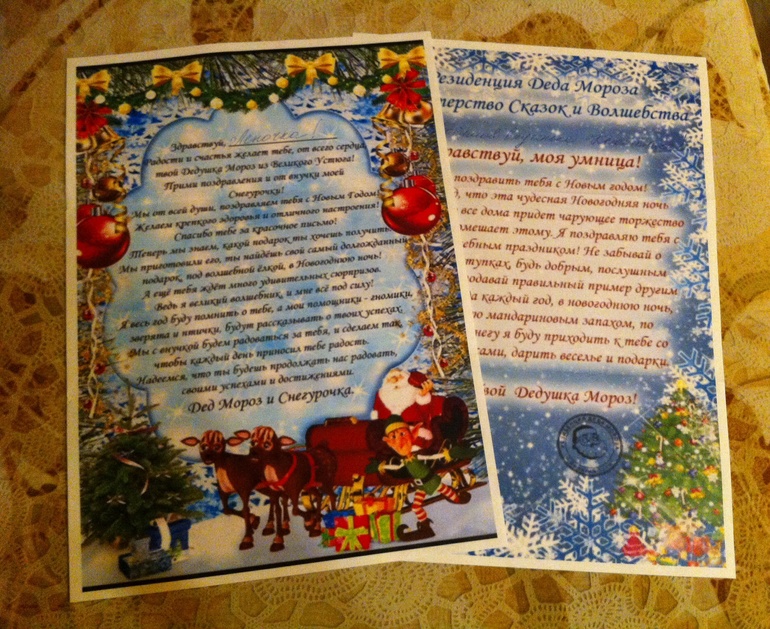 Здравствуй,
Радости и счастья желает тебе, от всего сердца
твой Дедушка Мороз из Великого Устюга!
Прими поздравления и от внучки моей
Снегурочки!
Мы от всей души, поздравляем тебя с Новым Годом!
Желаем крепкого здоровья и отличного настроения!
Спасибо тебе за красочное письмо!
Теперь мы знаем, какой подарок ты хочешь получить.
Мы приготовили его, ты найдёшь свой самый долгожданный
подарок, под волшебной ёлкой, в Новогоднюю ночь!
А ещё тебя ждёт много удивительных сюрпризов.
Ведь я великий волшебник, и мне всё под силу!
Я весь год буду помнить о тебе, а мои помощники - гномики,
зверята и птички, будут рассказывать о твоих успехах.
Мы с внучкой будем радоваться за тебя, и сделаем так,
чтобы каждый день приносил тебе радость.
Надеемся, что ты будешь продолжать нас радовать,
своими успехами и достижениями.
Дед Мороз и Снегурочка.
Резиденция Деда Мороза
терство Сказок и Волшебства
равствуй, моя умница!
поздравить тебя с Новым годом!
что эта чудесная Новогодняя ночь
все дома придет чарующее торжество
мешает этому. Я поздравляю тебя с
ебным праздником! Не забывай о
тупках, будь добрым, послушным
одавай правильный пример другим
а каждый год, в новогоднюю ночь,
ю мандариновым запахом, по
негу я буду приходить к тебе со
ами, дарить веселье и подарки.
вой Дедушка Мороз!